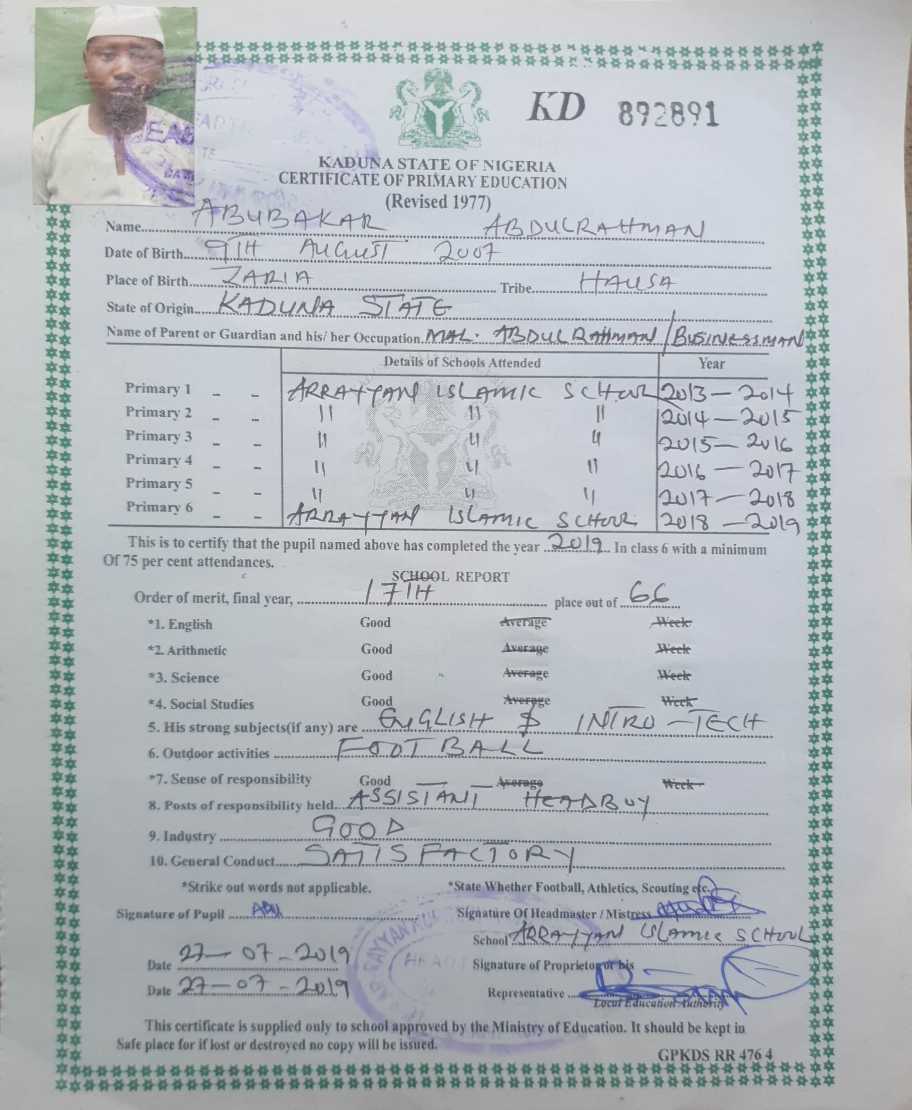 KD 892891
KADUNA STATE OF NIGERIA
CERTIFICATE OF PRIMARY EDUCATION
(Revised 1977)
Name ABUBAKAR ABDULRAHMAN
Date of Birth 9TH AUGUST 2007
Place of Birth ZARIA Tribe HAUSA
State of Origin KADUNA STATE
Name of Parent or Guardian and his/ her Occupation MAL. ABDULRAHMAN / BUSINESSMAN
Details of Schools Attended Year
Primary 1 - - ARRAYYAN ISLAMIC SCHOOL 2013 - 2014
Primary 2 - - " " " 2014 - 2015
Primary 3 - - " " " 2015 - 2016
Primary 4 - - " " " 2016 - 2017
Primary 5 - - " " " 2017 - 2018
Primary 6 - - ARRAYYAN ISLAMIC SCHOOL 2018 - 2019
This is to certify that the pupil named above has completed the year 2019 In class 6 with a minimum
Of 75 per cent attendances.
SCHOOL REPORT
Order of merit, final year, 17TH place out of 66
*1. English Good Average Week
*2. Arithmetic Good Average Week
*3. Science Good Average Week
*4. Social Studies Good Average Week
5. His strong subjects(if any) are ENGLISH $ INTRO-TECH
6. Outdoor activities FOOTBALL
*7. Sense of responsibility Good Average Week
8. Posts of responsibility held ASSISTANT HEADBOY
9. Industry GOOD
10. General Conduct SATISFACTORY
*Strike out words not applicable. *State Whether Football, Athletics, Scouting etc.
Signature of Pupil ABU Signature Of Headmaster / Mistress
School ARRAYYAN ISLAMIC SCHOOL
Date 27-07-2019 Signature of Proprietor or his
Date 27-07-2019 Representative
Local Education Authority
This certificate is supplied only to school approved by the Ministry of Education. It should be kept in
Safe place for if lost or destroyed no copy will be issued.
GPKDS RR 476 4